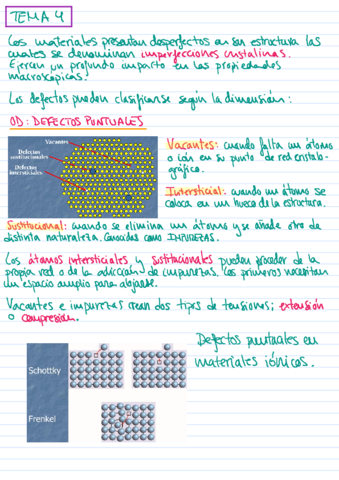 TEMA 4
Los materiales presentan desperfectos en su estructura las
cuales se denominan imperfecciones cristalinas.
Ejercen un profundo impacto en las propiedades
macroscópicas.
Los defectos pueden clasificarse según la dimensión:
0D: DEFECTOS PUNTUALES
Vacantes
Defectos
sustitucionales
Defectos
intersticiales
Vacantes: cuando falta un átomo
o ión en su punto de red cristalo-
gráfica.
Intersticial: cuando un átomo se
coloca en un hueco de la estructura.
Sustitucional: cuando se elimina un átomo y se añade otro de
distinta naturaleza. Conocidas como IMPUREZAS.
Los átomos intersticiales y sustitucionales pueden proceder de la
propia red o de la adicción de impurezas. Los primeros necesitan
un espacio amplio para alojarse.
Vacantes e impurezas crean dos tipos de tensiones; extensión
o compresión.
Schottky
Frenkel
Defectos puntuales en
materiales iónicos.